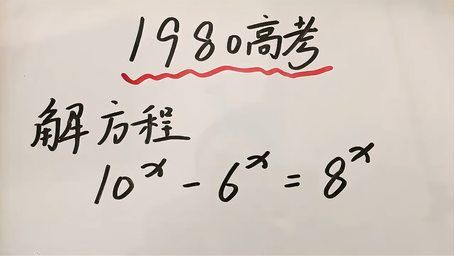 1980高考
解方程
10ˣ - 6ˣ = 8ˣ